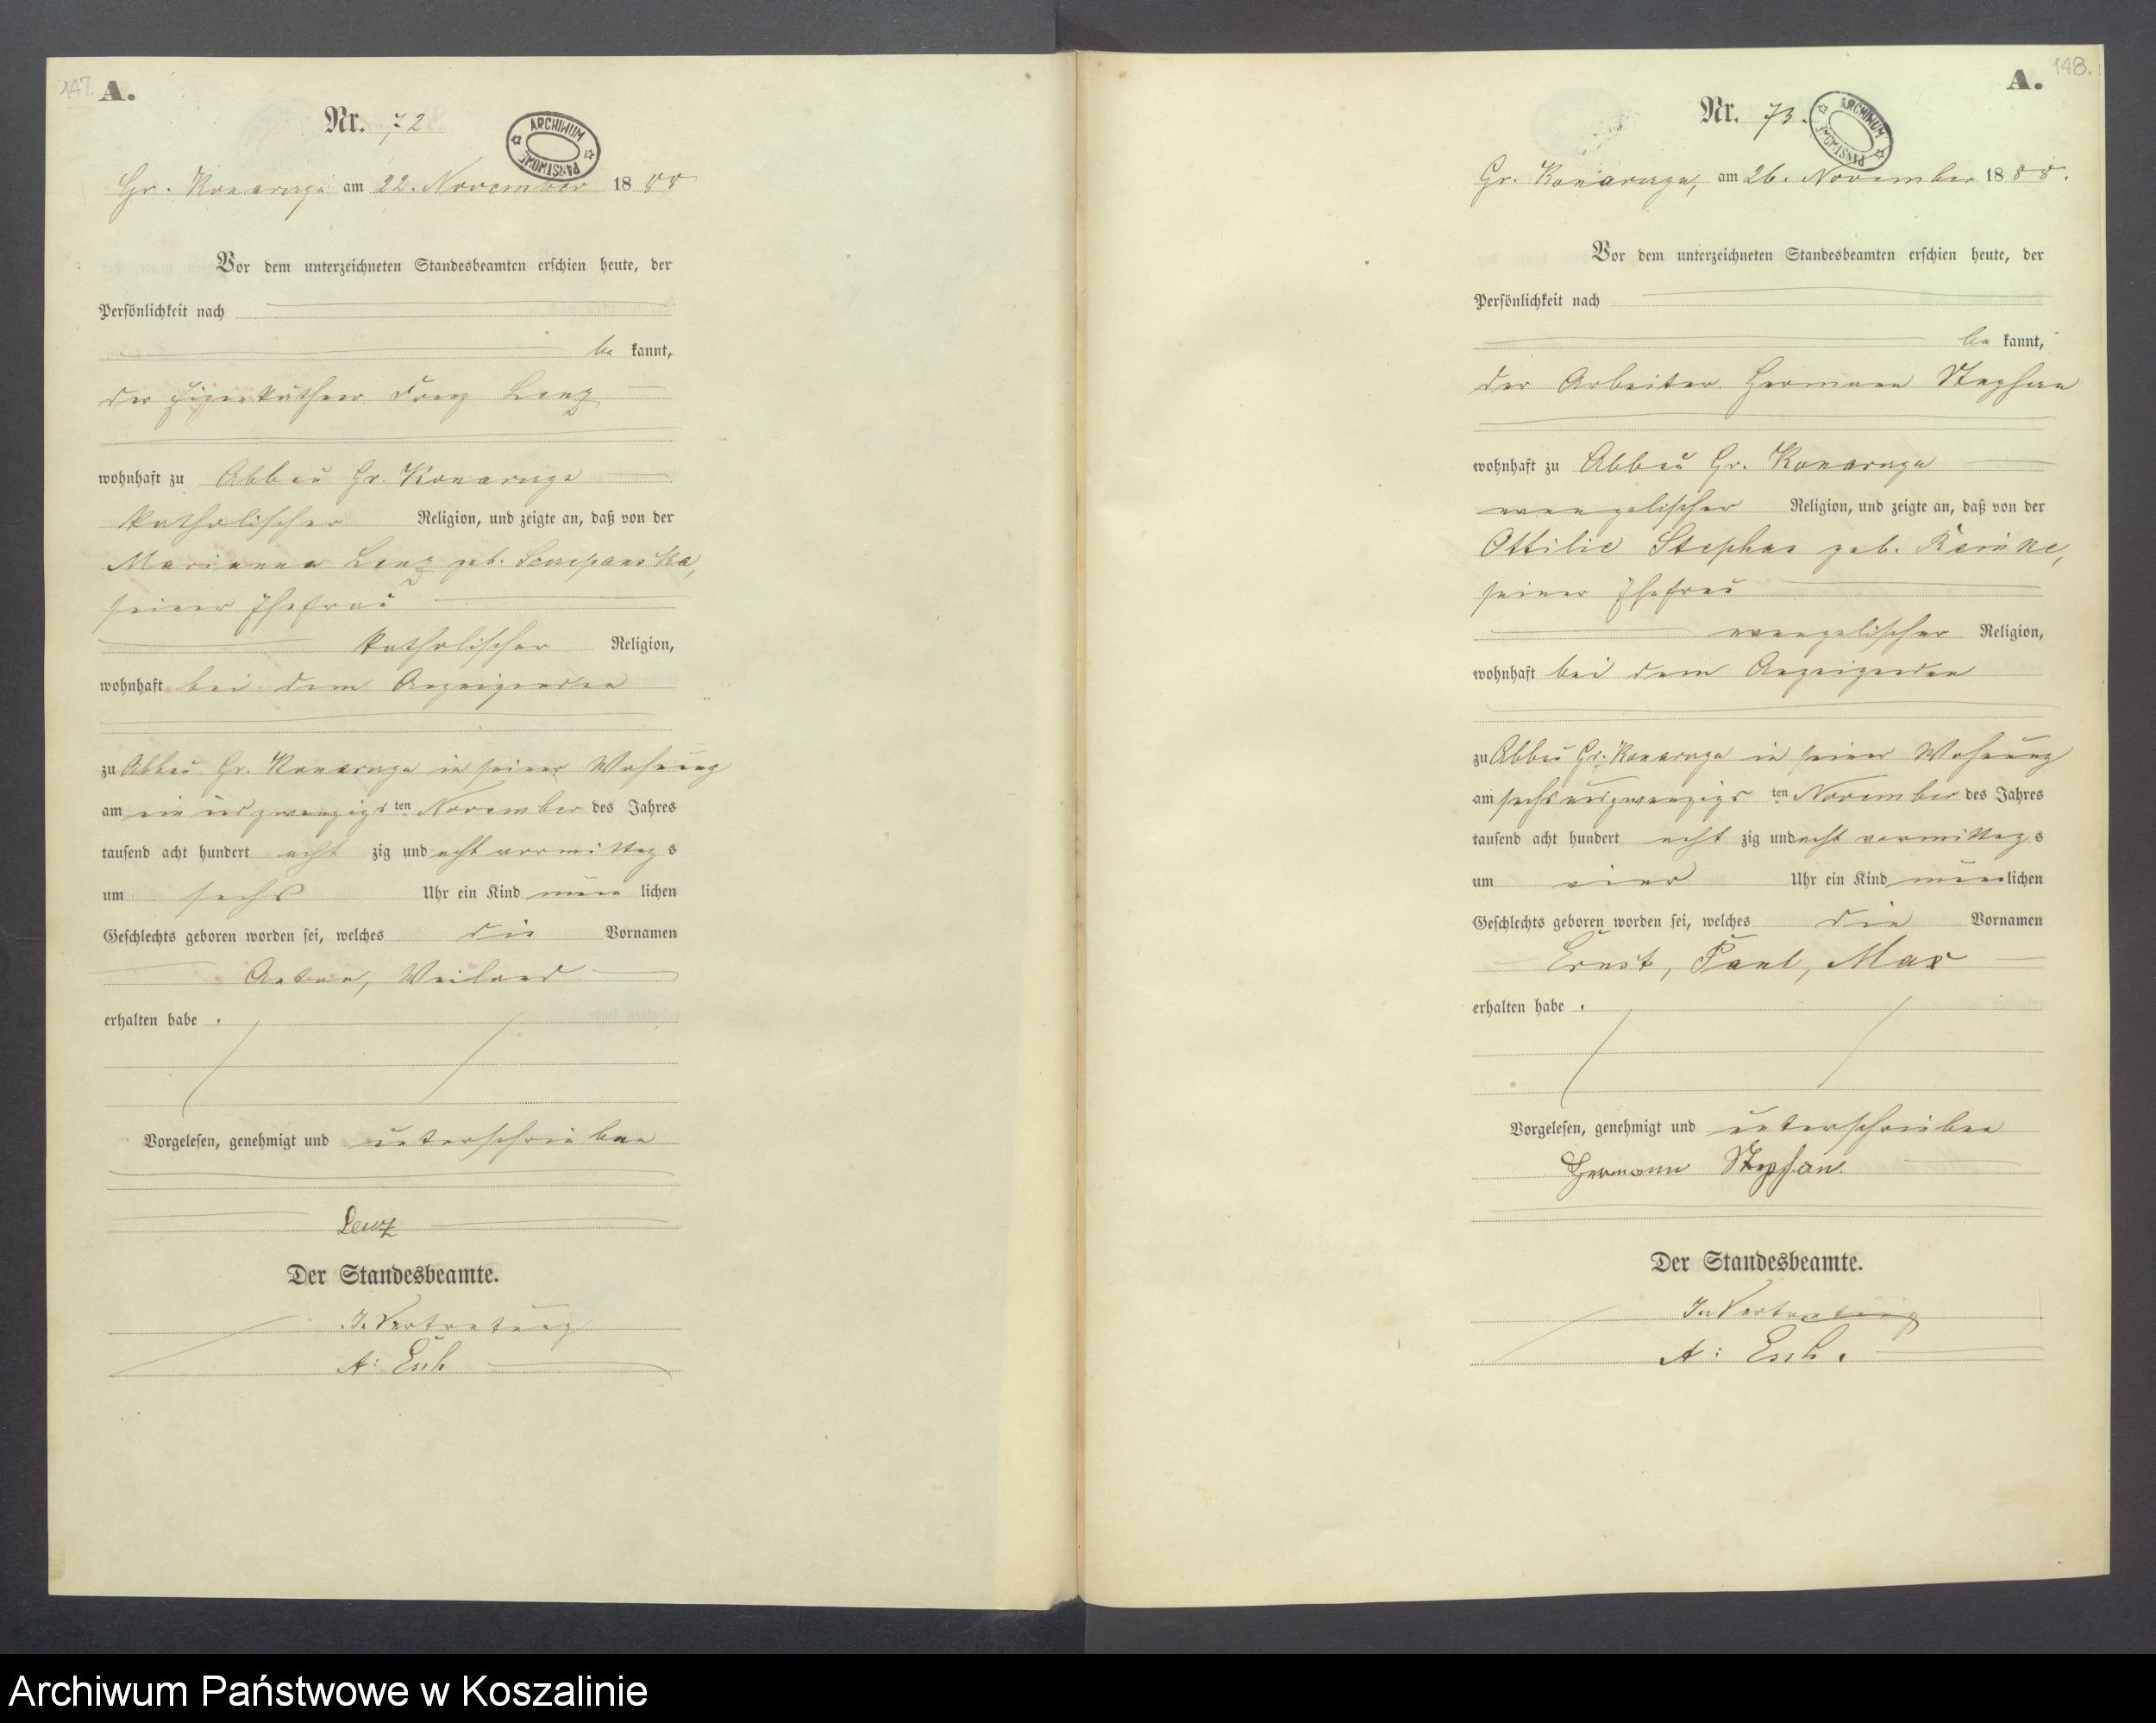 147.
A.
Nr. 72
ARCHIWUM PAŃSTWOWE
Gr. Konarczyn am 22. November 1888
Vor dem unterzeichneten Standesbeamten erschien heute, der
Persönlichkeit nach
be kannt,
der Eigenkäthner Franz Lenz
wohnhaft zu Abbau Gr. Konarczyn
katholischer Religion, und zeigte an, daß von der
Marianna Lenz geb.
seiner Ehefrau
katholischer Religion,
wohnhaft bei dem Anzeigenden
zu Abbau Gr. Konarczyn in seiner Wohnung
am ein und zwanzigsten November des Jahres
tausend acht hundert acht zig und acht vormittags
um sechs Uhr ein Kind männlichen
Geschlechts geboren worden sei, welches die Vornamen
Anton,
erhalten habe.
Vorgelesen, genehmigt und unterschrieben
Lenz
Der Standesbeamte.
In Vertretung
A: Esch
148.
A.
Nr. 73.
ARCHIWUM PAŃSTWOWE
Gr. Konarczyn, am 26. November 1888.
Vor dem unterzeichneten Standesbeamten erschien heute, der
Persönlichkeit nach
be kannt,
der Arbeiter Hermann Stephan
wohnhaft zu Abbau Gr. Konarczyn
evangelischer Religion, und zeigte an, daß von der
Ottilie Stephan geb. Reinke,
seiner Ehefrau
evangelischer Religion,
wohnhaft bei dem Anzeigenden
zu Abbau Gr. Konarczyn in seiner Wohnung
am sechsundzwanzigsten November des Jahres
tausend acht hundert acht zig und acht vormittags
um vier Uhr ein Kind männlichen
Geschlechts geboren worden sei, welches die Vornamen
Ernst, Paul, Max
erhalten habe.
Vorgelesen, genehmigt und unterschrieben
Hermann Stephan.
Der Standesbeamte.
In Vertretung
A: Esch.
Archiwum Państwowe w Koszalinie